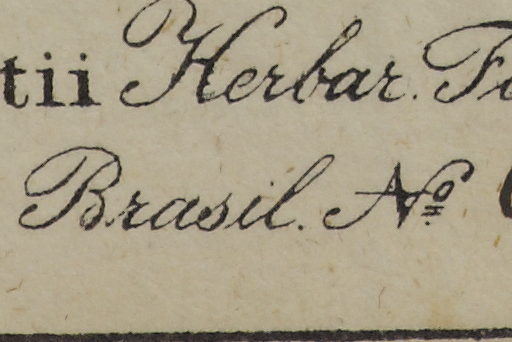 tii Herbar. F
Brasil. Nº